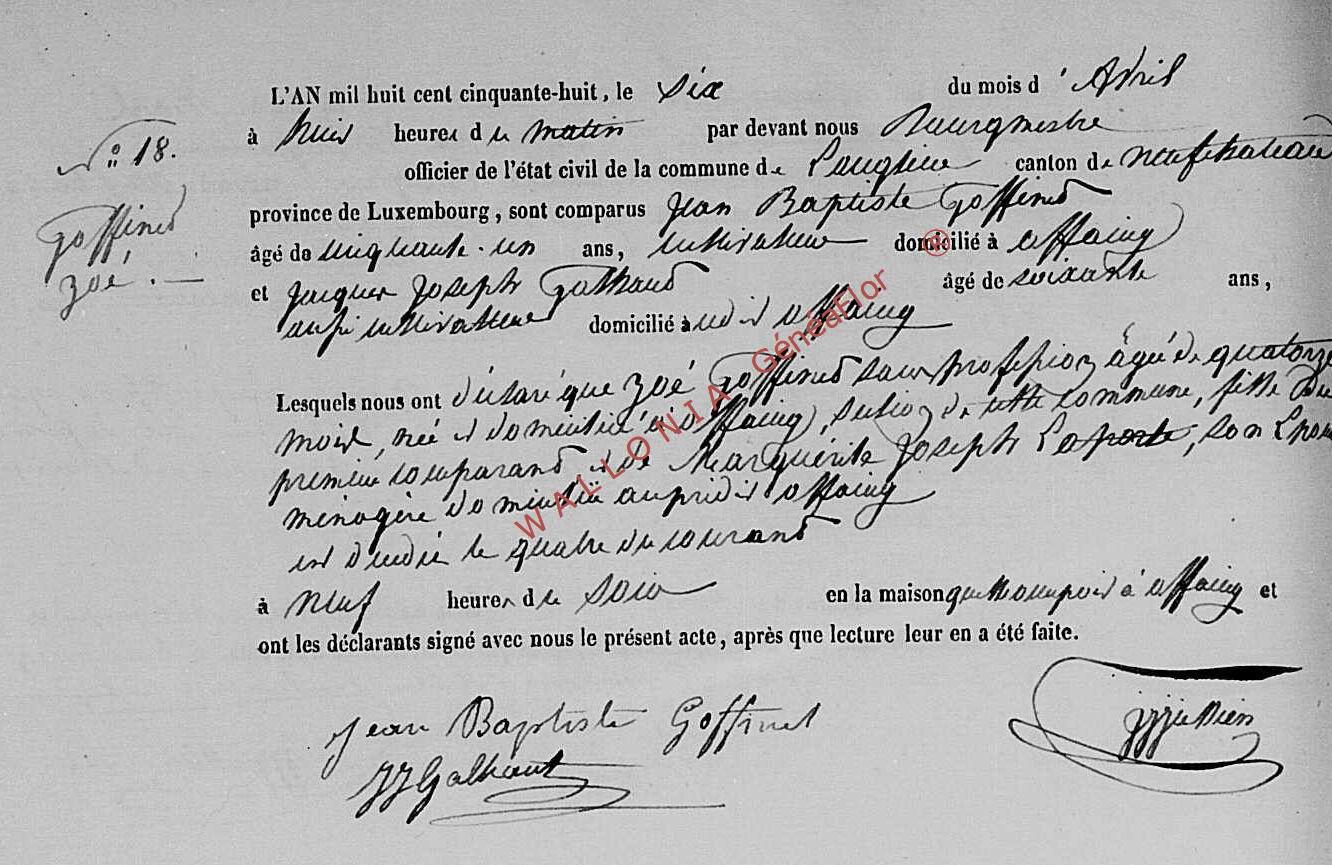 L'AN mil huit cent cinquante-huit, le six du mois d' Avril
N° 18.
à huit heures du matin par devant nous Bourgmestre
officier de l'état civil de la commune de Longlier canton de neufchateau
Goffinet
province de Luxembourg, sont comparus Jean Baptiste Goffinet
âgé de cinquante-un ans, cultivateur domicilié à offaing
Zoé.
et Jacques Joseph Galhaut âgé de soixante ans,
aussi cultivateur domicilié à audit offaing
Lesquels nous ont déclaré que Zoé Goffinet sans profession âgée de quatorze
mois, née et domiciliée à offaing, section de cette commune, fille du
premier comparant et de Marguérite Joseph Laporte, son Epouse
ménagère domiciliée aussi audit offaing
est décédée le quatre du courant
à neuf heures du soir en la maison qu'elle occupoit à offaing et
ont les déclarants signé avec nous le présent acte, après que lecture leur en a été faite.
Jean Baptiste Goffinet
JJ Galhaut
WALLONIA GénéaFlor ®